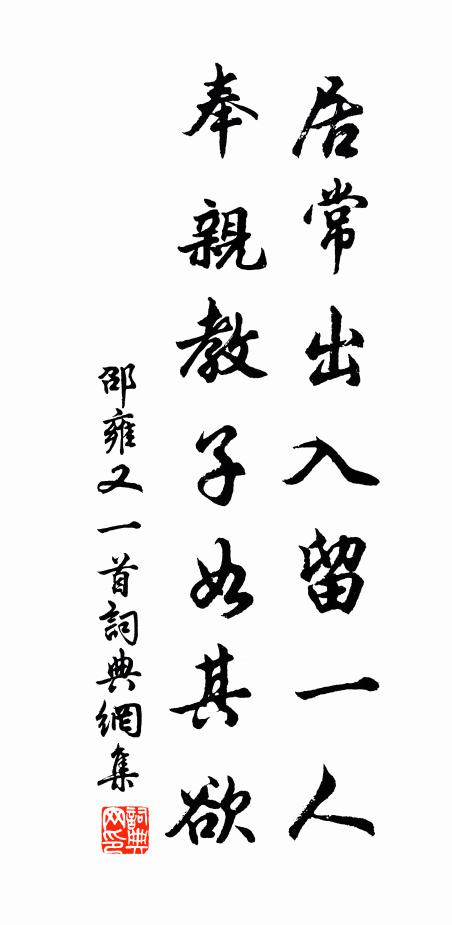 居常出入留一人
奉親教子如其欲
邵雍又一首詞典網集
詞典网印